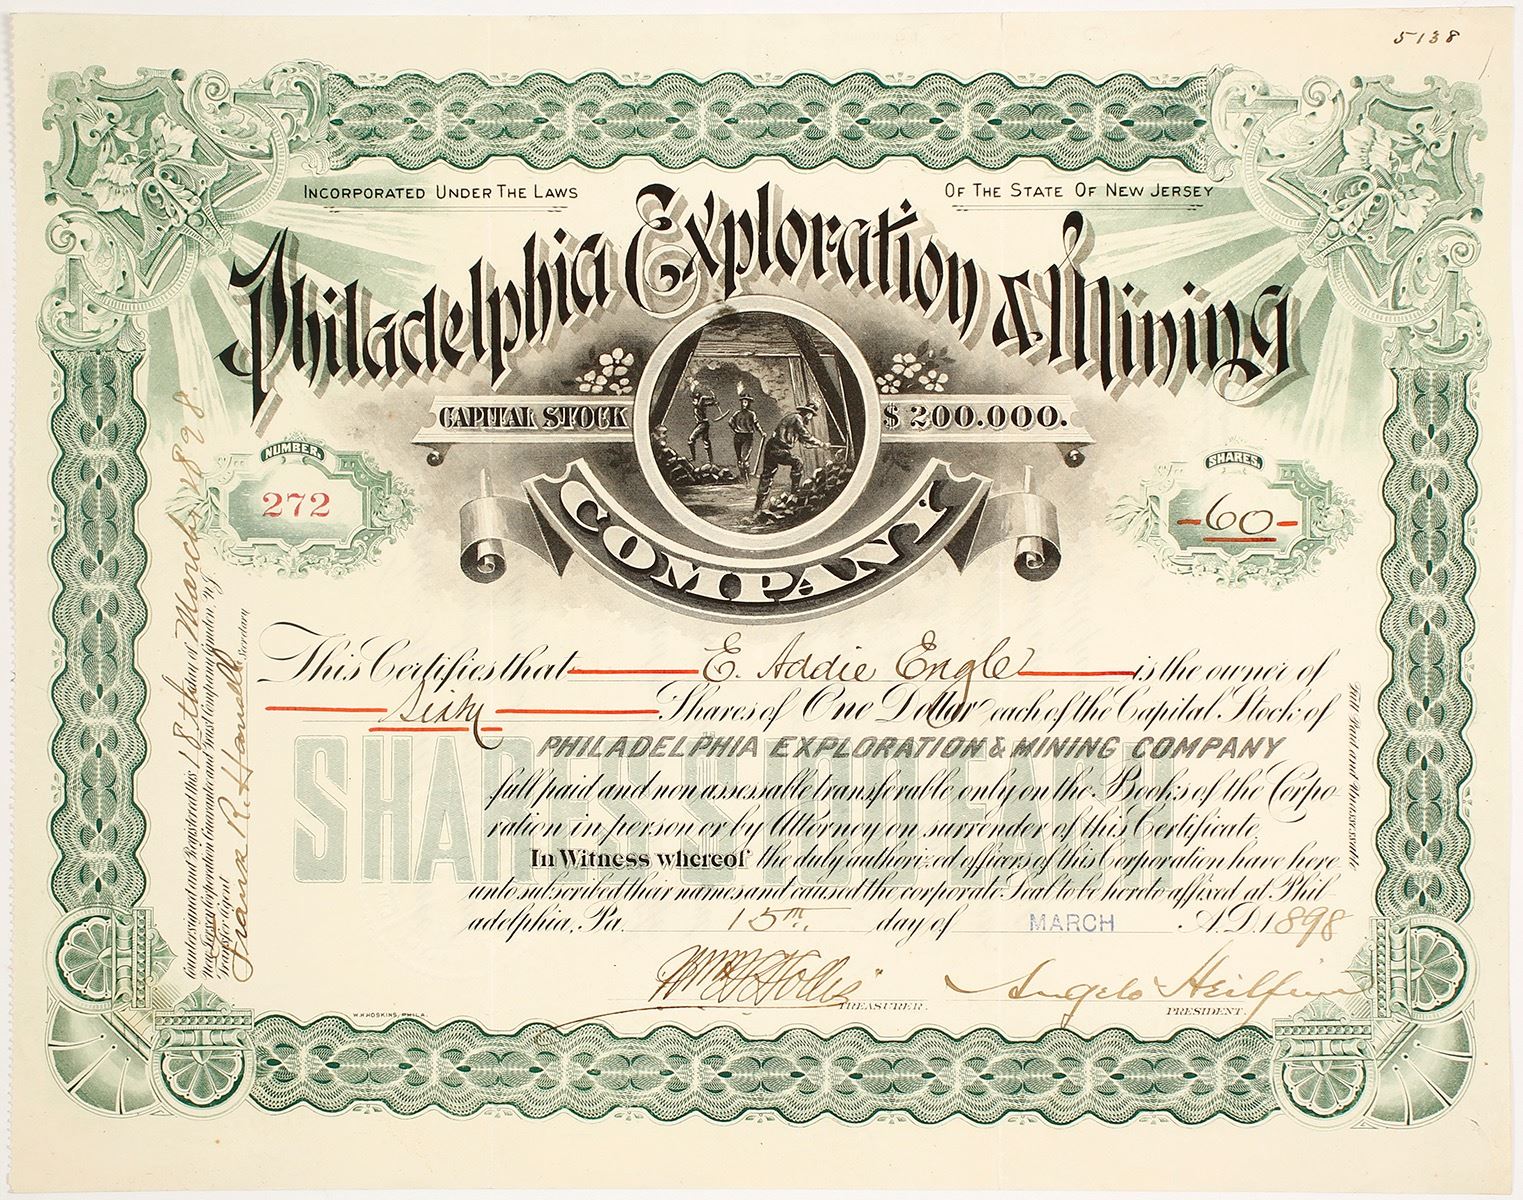 5138
INCORPORATED UNDER THE LAWS OF THE STATE OF NEW JERSEY
Philadelphia Exploration & Mining
CAPITAL STOCK $200.000.
COMPANY
NUMBER.
272
SHARES.
-60-
This Certifies that E. Addie Engle is the owner of
Sixty Shares of One Dollar each of the Capital Stock of
PHILADELPHIA EXPLORATION & MINING COMPANY
full paid and non assessable transferable only on the Books of the Corpo-
ration in person or by Attorney on surrender of this Certificate.
In Witness whereof the duly authorized officers of this Corporation have here
unto subscribed their names and caused the corporate Seal to be hereto affixed at Phil-
adelphia, Pa. 15th. day of MARCH A.D. 1898
TREASURER.
Angelo Heilprin
PRESIDENT.
W.H. HOSKINS, PHILA.
SHARES $1.00 EACH
Countersigned and Registered this 18th day of March 1898.
New Jersey Corporation Guarantee and Trust Company Camden, N.J.
Transfer Agent
Secretary
Full Paid and Unassessable